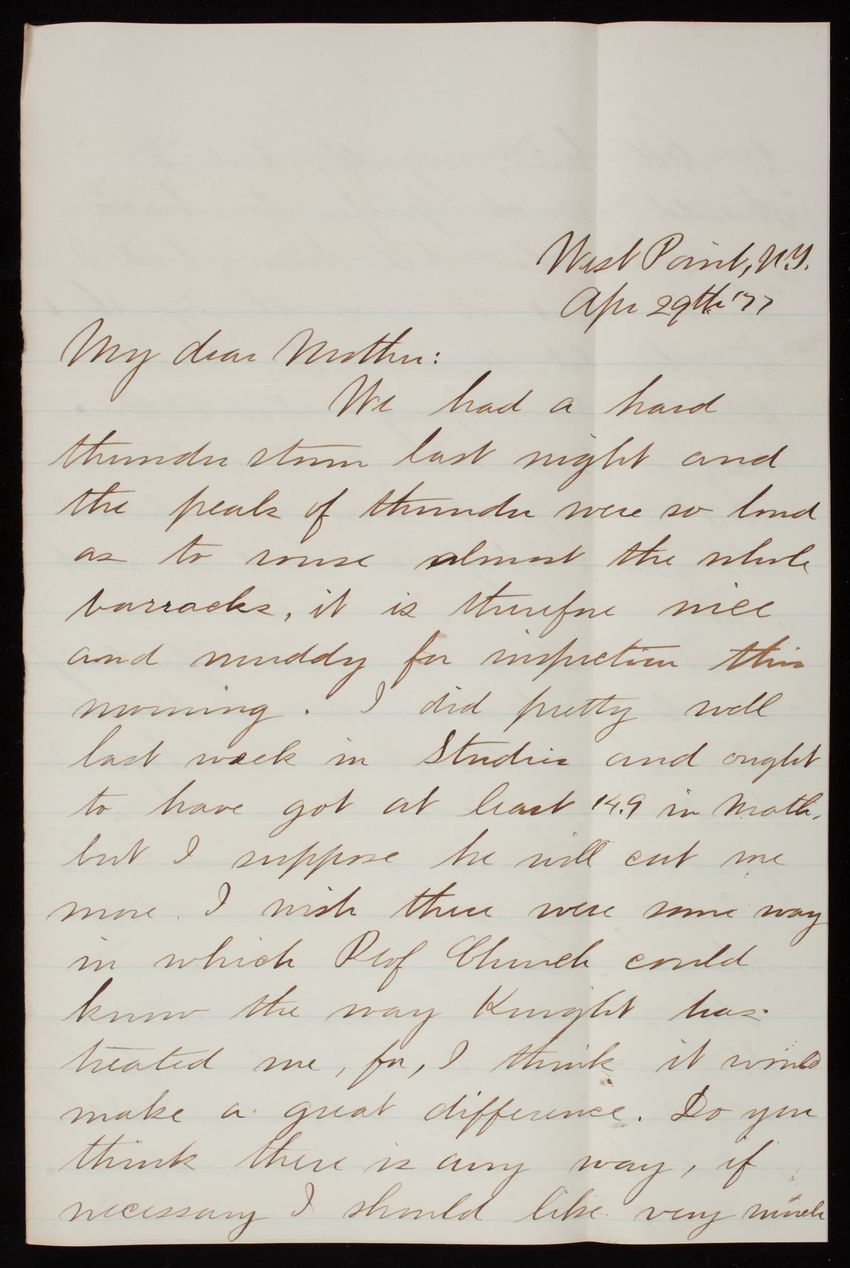 West Point, N.Y.
Apr 29th '77
My dear Mother:
We had a hard
thunder storm last night and
the peals of thunder were so loud
as to rouse almost the whole
barracks, it is therefore nice
and muddy for inspection this
morning. I did pretty well
last week in Studies and ought
to have got at least 14.9 in Math.
but I suppose he will cut me
more. I wish there were some way
in which Prof Church could
know the way Knight has
treated me, for, I think it would
make a great difference. Do you
think there is any way, if
necessary I should like very much